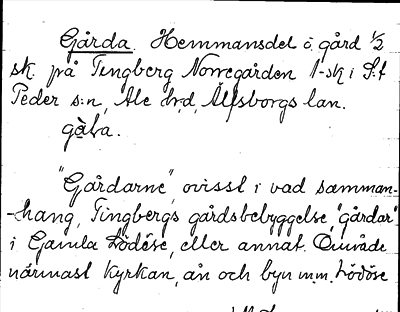 Gårda. Hemmansdel o. gård 1/2
sk. på Tingberg Norregården 1-sk i S:t
Peder s:n, Ale hrd, Älfsborgs län.
gàɫa.
"Gårdarne", ovisst i vad samman-
-hang, Tingbergs gårdsbebyggelse, "gårdar"
i Gamla Lödöse, eller annat. Område
närmast kyrkan, ån och byn m.m. Lödöse